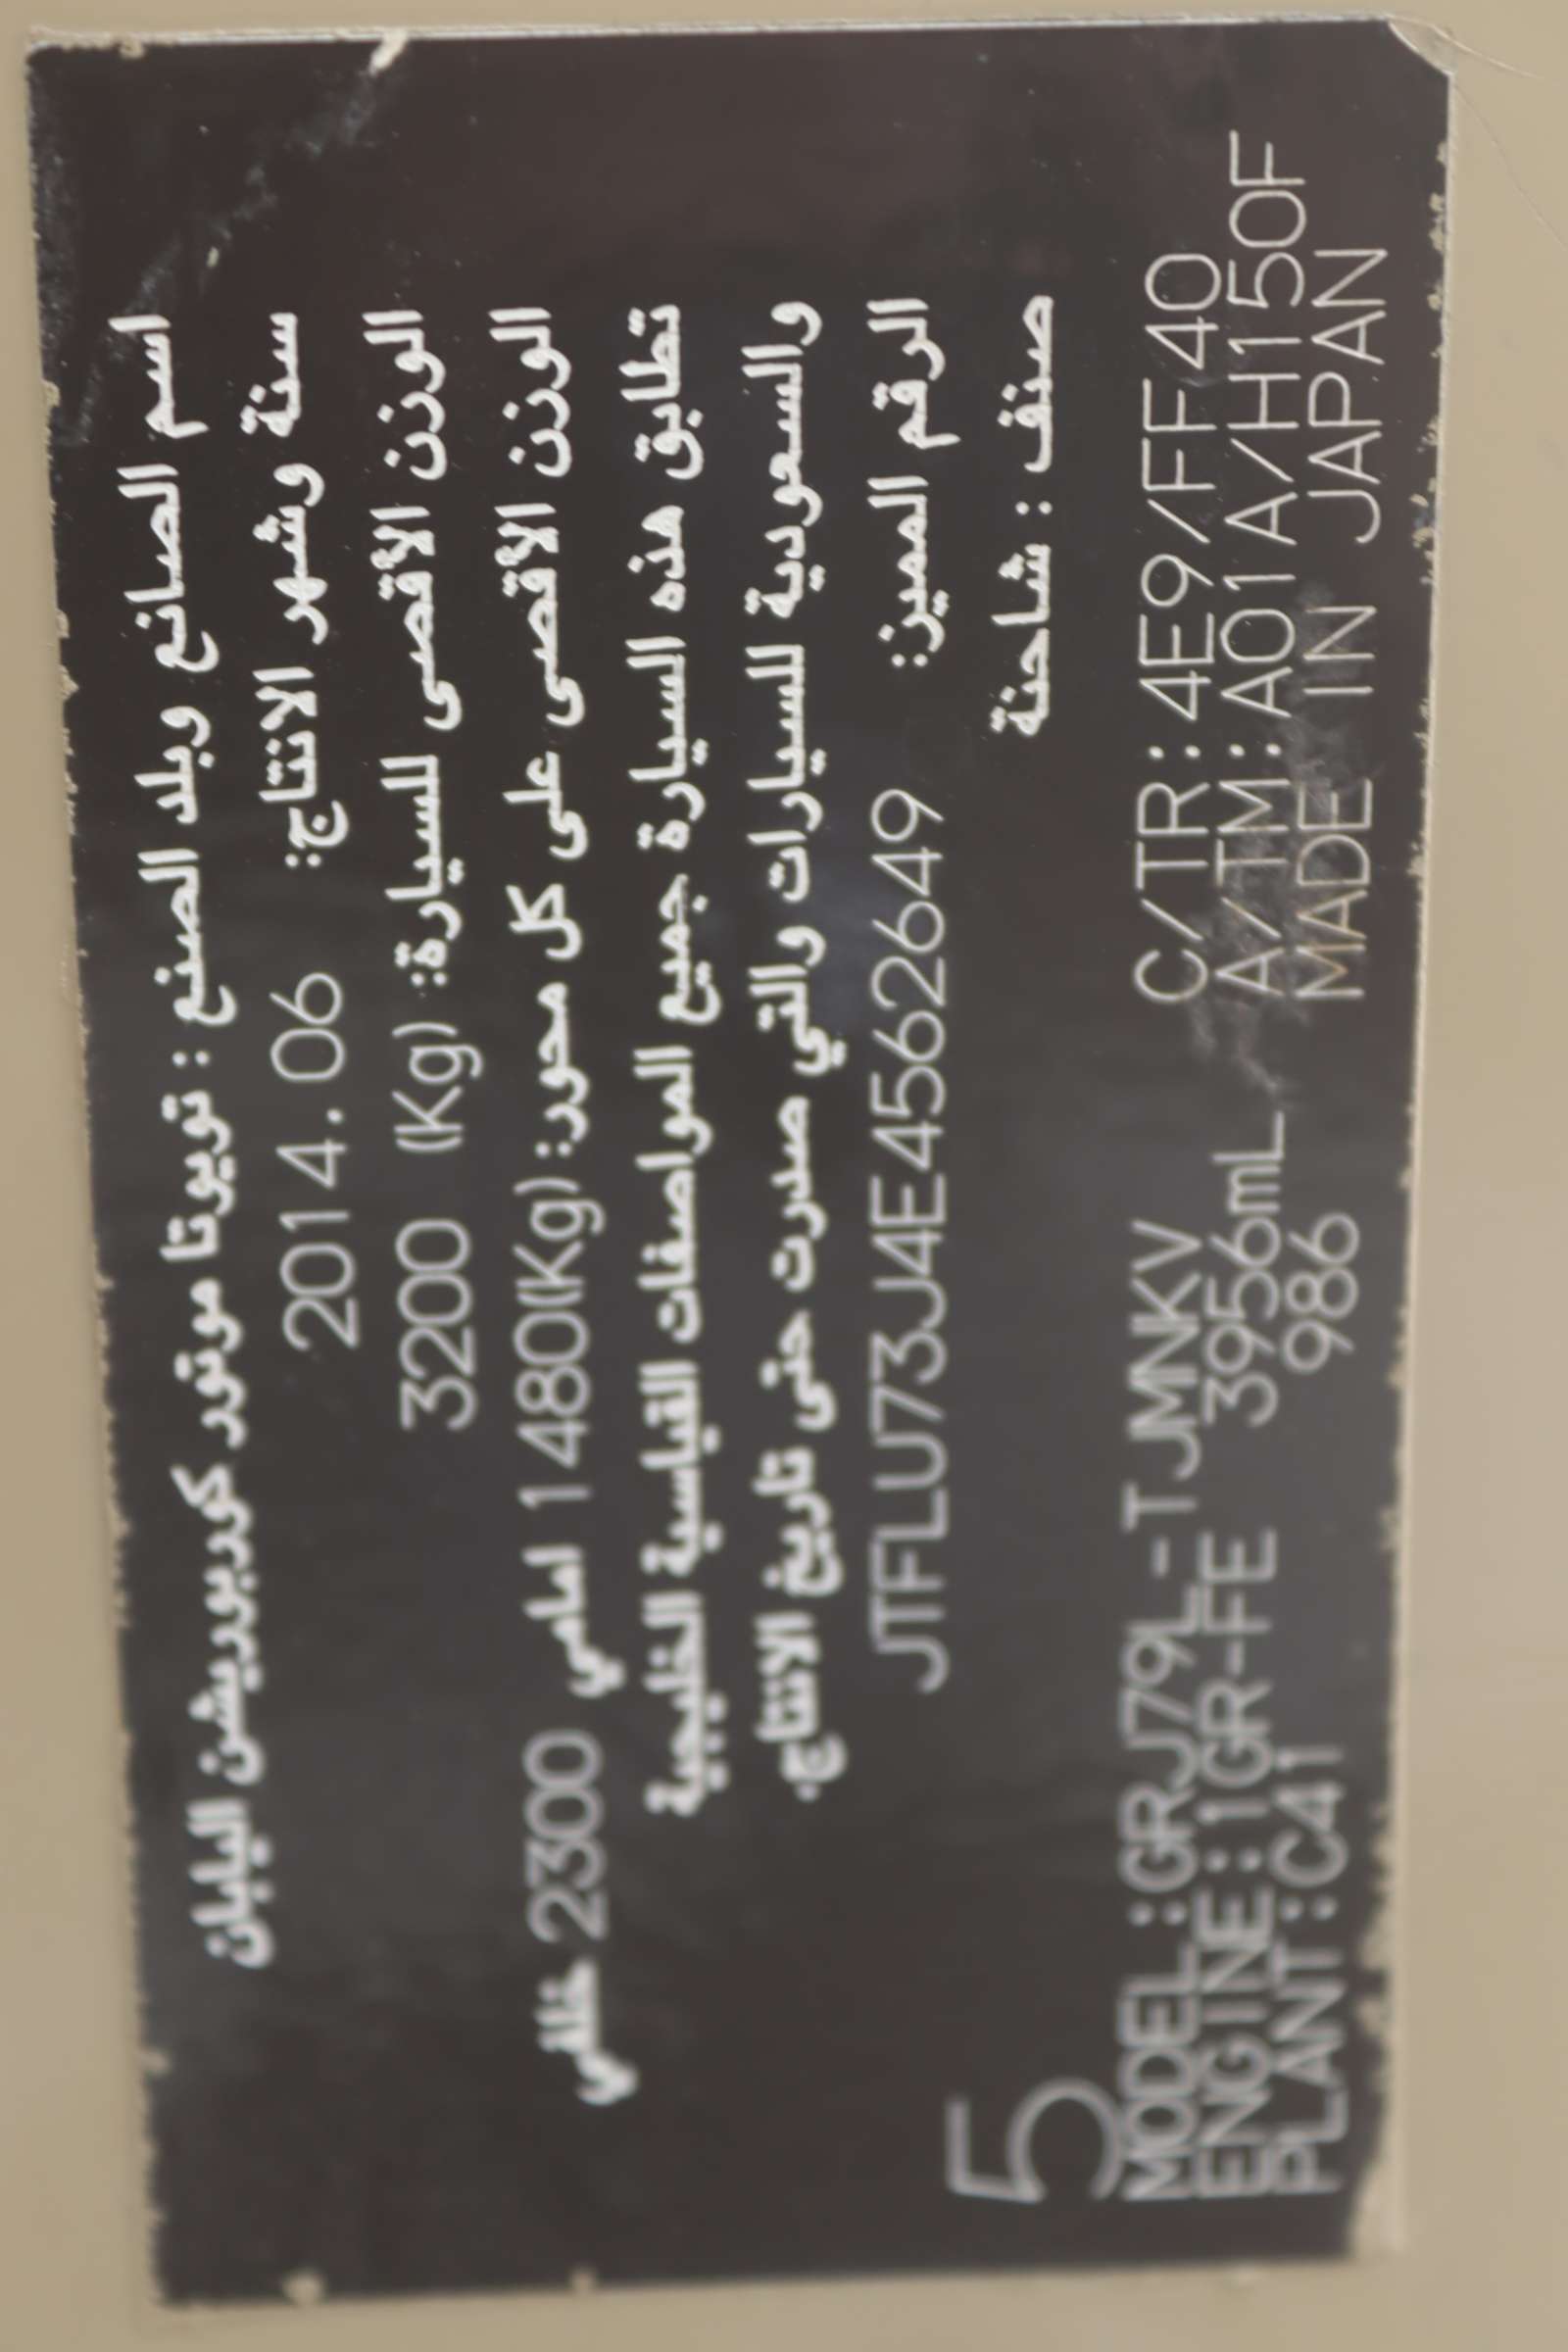 اسم الصانع وبلد الصنع : تويوتا موتور كوربوريشن اليابان
سنة وشهر الانتاج: 2014.06
الوزن الأقصى للسيارة: 3200 (Kg)
الوزن الأقصى على كل محور: (Kg)1480 امامي 2300 خلفي
تطابق هذه السيارة جميع المواصفات القياسية الخليجية
والسعودية للسيارات والتي صدرت حتى تاريخ الانتاج.
الرقم المميز: JTFLU73J4E4562649
صنف : شاحنة
5
MODEL:GRJ79L-TJMNKV C/TR:4E9/FF40
ENGINE:1GR-FE 3956mL A/TM:A01A/H150F
PLANT:C41 986 MADE IN JAPAN